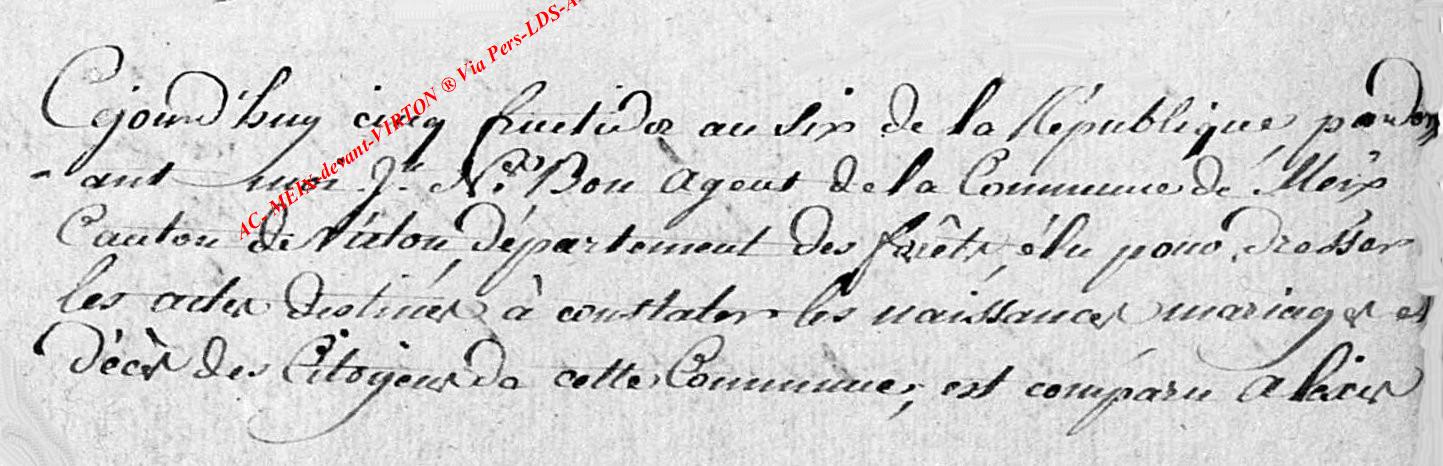 AC-MEIX-devant-VIRTON ® Via Pers-LDS-A
Cejourd'huy cinq fructidor an six de la République, pardev
-ant moi J.n N.as Bon Agent de la Commune de Meix
Canton de Virton, Département des forêts, élu pour dresser
les actes destinés à constater les naissances mariages et
décès des Citoyens de cette Commune, est comparu Alexis